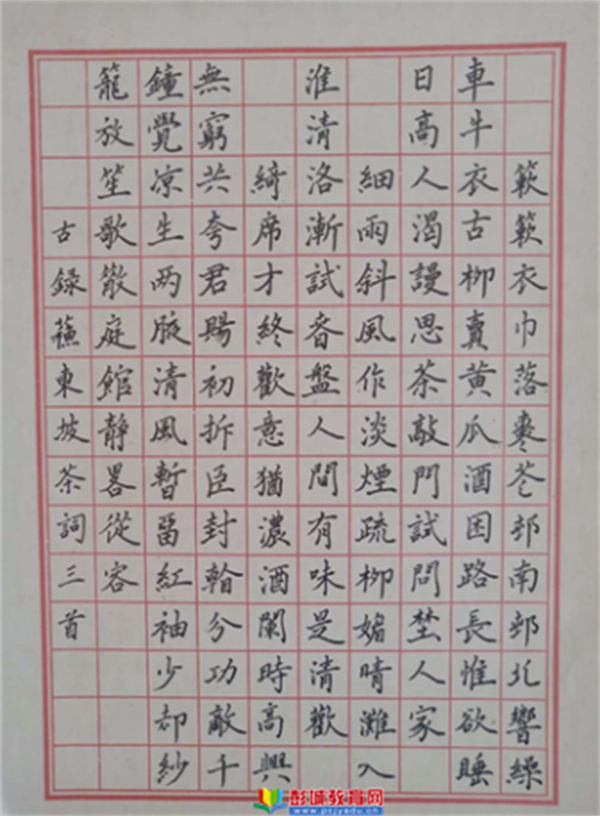 簌簌衣巾落棗花邨南邨北響繰
車牛衣古柳賣黄瓜酒困路長惟欲睡
日高人渴謾思茶敲門試問埜人家
細雨斜風作淡煙疏柳媚晴灘入
淮清洛漸試香盤人間有味是清歡
綺席才終歡意猶濃酒闌時高興
無窮共夸君賜初拆臣封分功敵千
鐘覺凉生两腋清風暫留紅袖少却紗
籠放笙歌散庭館静畧從容
古録蘓東坡茶詞三首
彭城教育网
www.pcjyedu.cn